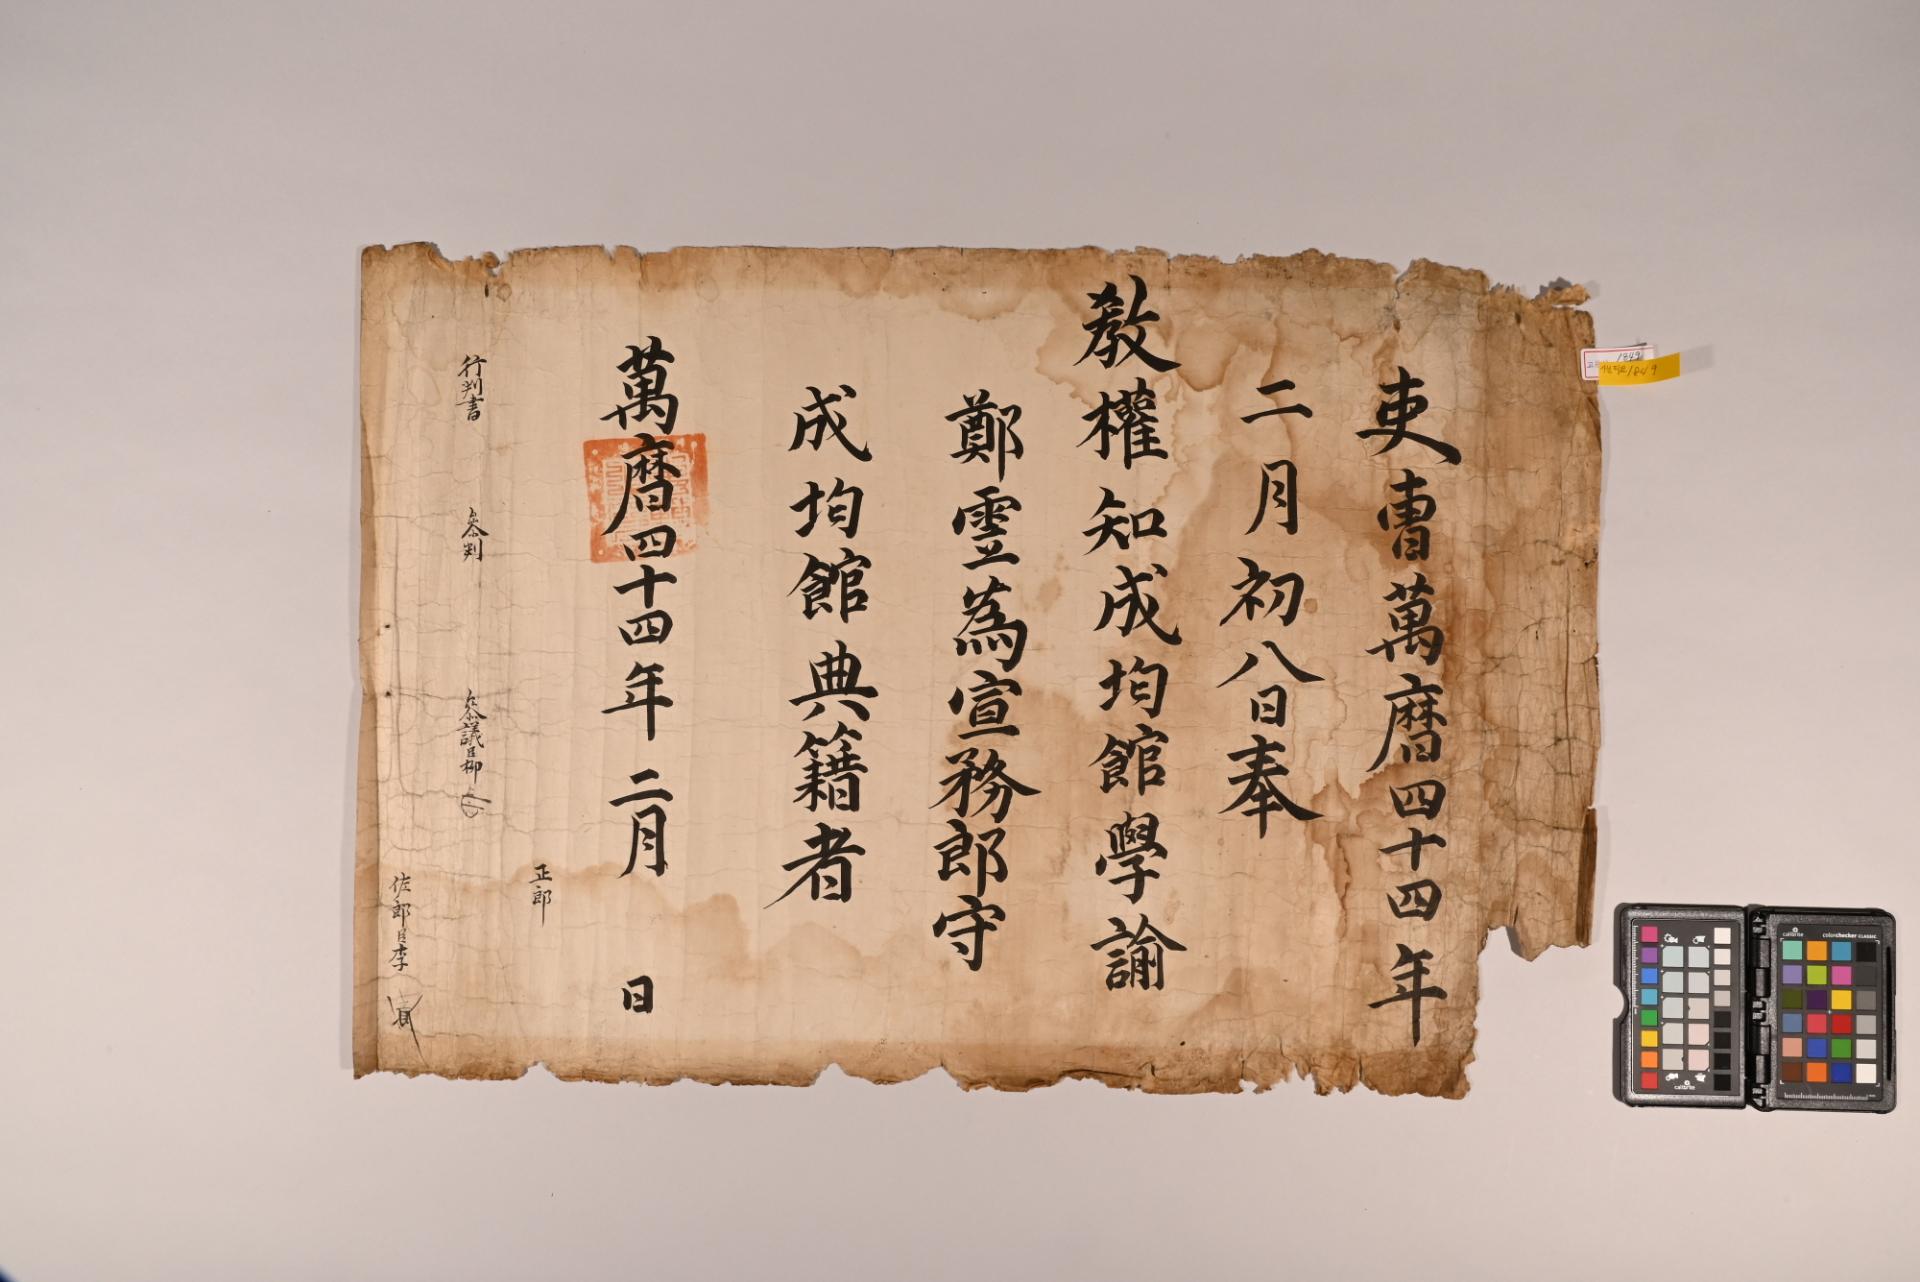 吏曺萬曆四十四年
二月初八日奉
敎權知成均館學諭
鄭霊為宣務郎守
成均館典籍者
萬曆四十四年 二月 日
正郎
行判書 叅判 叅議臣柳
佐郎臣李
1849
1849
calibrite
colorchecker CLASSIC
calibrite